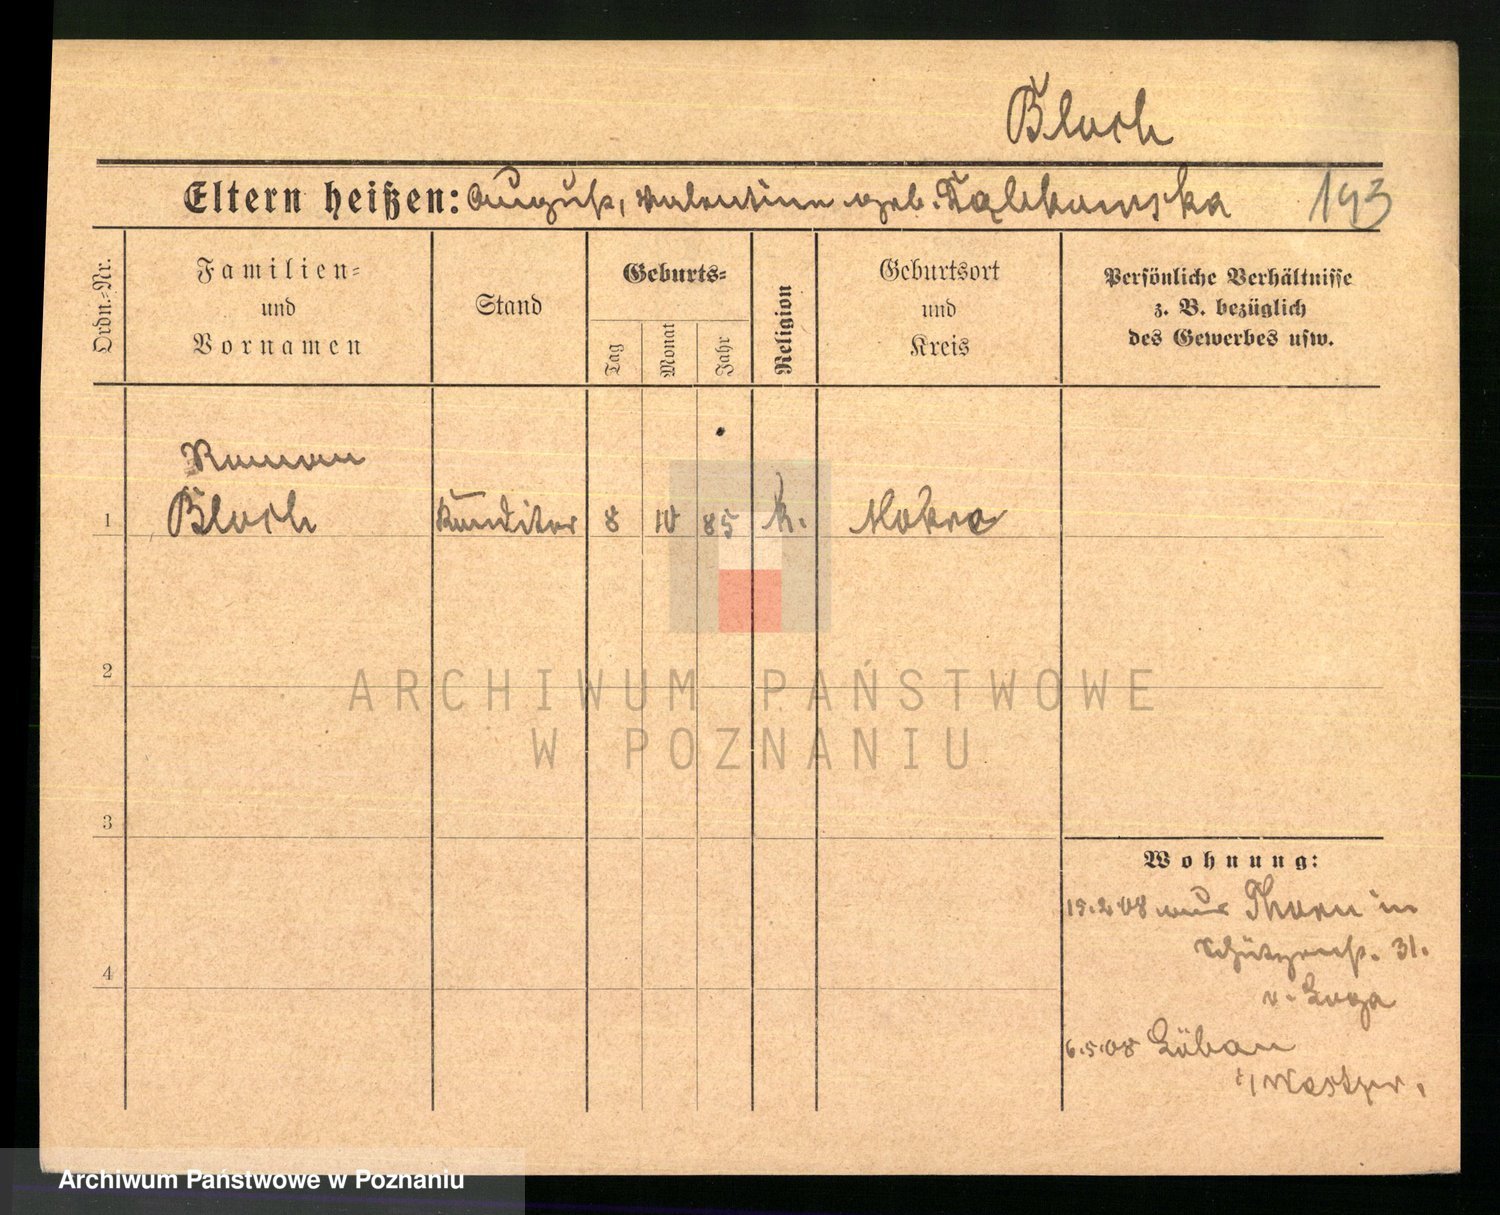 Bloch
Eltern heißen: August, Valentine geb.
193
Ordn.-Nr.
Familien-
und
Vornamen
Stand
Geburts-
Tag
Monat
Jahr
Religion
Geburtsort
und
Kreis
Persönliche Verhältnisse
z. B. bezüglich
des Gewerbes usw.
Roman
1 Bloch Konditor 8 10 85 k. Mokre
2
ARCHIWUM PAŃSTWOWE
W POZNANIU
3
Wohnung:
15.2.08 aus Thorn in
Schützenstr. 31.
v. Loga
4
6.5.08 Löbau
i/Westpr.
Archiwum Państwowe w Poznaniu